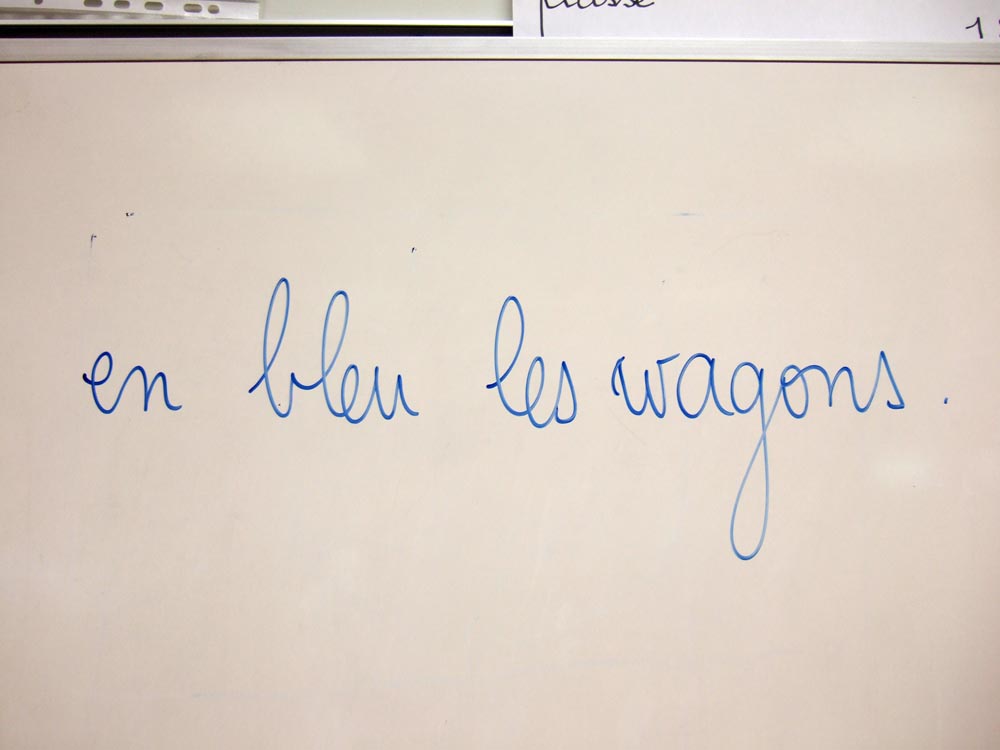 en bleu les wagons.